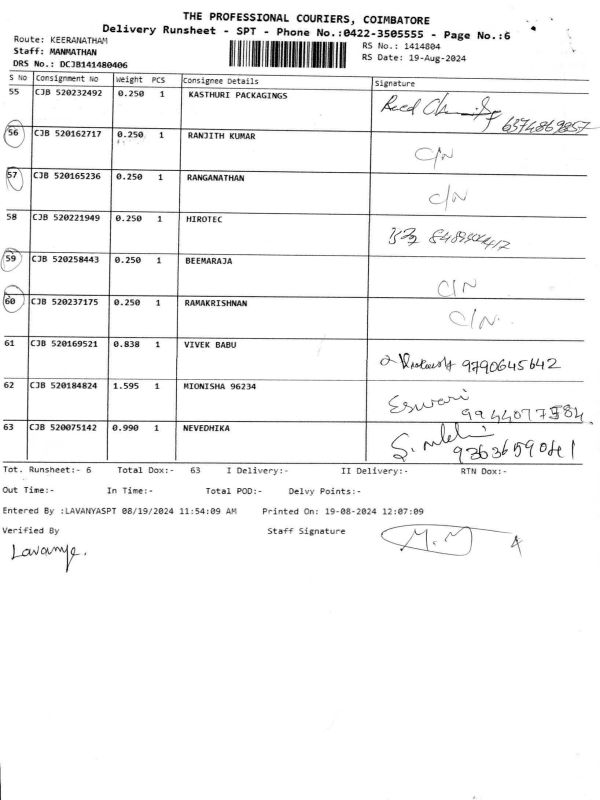 THE PROFESSIONAL COURIERS, COIMBATORE
Delivery Runsheet - SPT - Phone No.:0422-3505555 - Page No.:6
Route: KEERANATHAM
RS No.: 1414804
Staff: MANMATHAN
RS Date: 19-Aug-2024
DRS No.: DCJB141480406
S No Consignment No Weight PCS Consignee Details Signature
55 CJB 520232492 0.250 1 KASTHURI PACKAGINGS
Recd 6374869857
56 CJB 520162717 0.250 1 RANJITH KUMAR
C/N
57 CJB 520165236 0.250 1 RANGANATHAN
C/N
58 CJB 520221949 0.250 1 HIROTEC
59 CJB 520258443 0.250 1 BEEMARAJA
C/N
60 CJB 520237175 0.250 1 RAMAKRISHNAN
C/N.
61 CJB 520169521 0.838 1 VIVEK BABU
9790645642
62 CJB 520184824 1.595 1 MIONISHA 96234
Eswari
9944077584.
63 CJB 520075142 0.990 1 NEVEDHIKA
9363659041
Tot. Runsheet:- 6 Total Dox:- 63 I Delivery:- II Delivery:- RTN Dox:-
Out Time:- In Time:- Total POD:- Delvy Points:-
Entered By :LAVANYASPT 08/19/2024 11:54:09 AM Printed On: 19-08-2024 12:07:09
Verified By Staff Signature
Lavanya. M.M